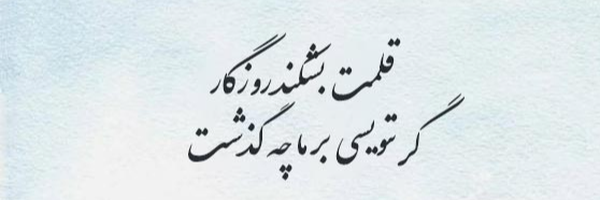 قلمت بشکند روزگار
گر ننویسی بر ما چه گذشت